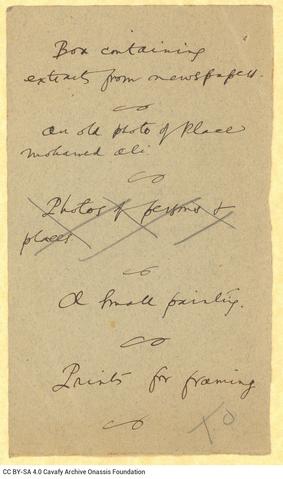 Box containing
extracts from newspapers.
an old photo of Place
Mohamed Ali
Photos of persons &
places
A small painting.
Prints for framing
T.O
CC BY-SA 4.0 Cavafy Archive Onassis Foundation